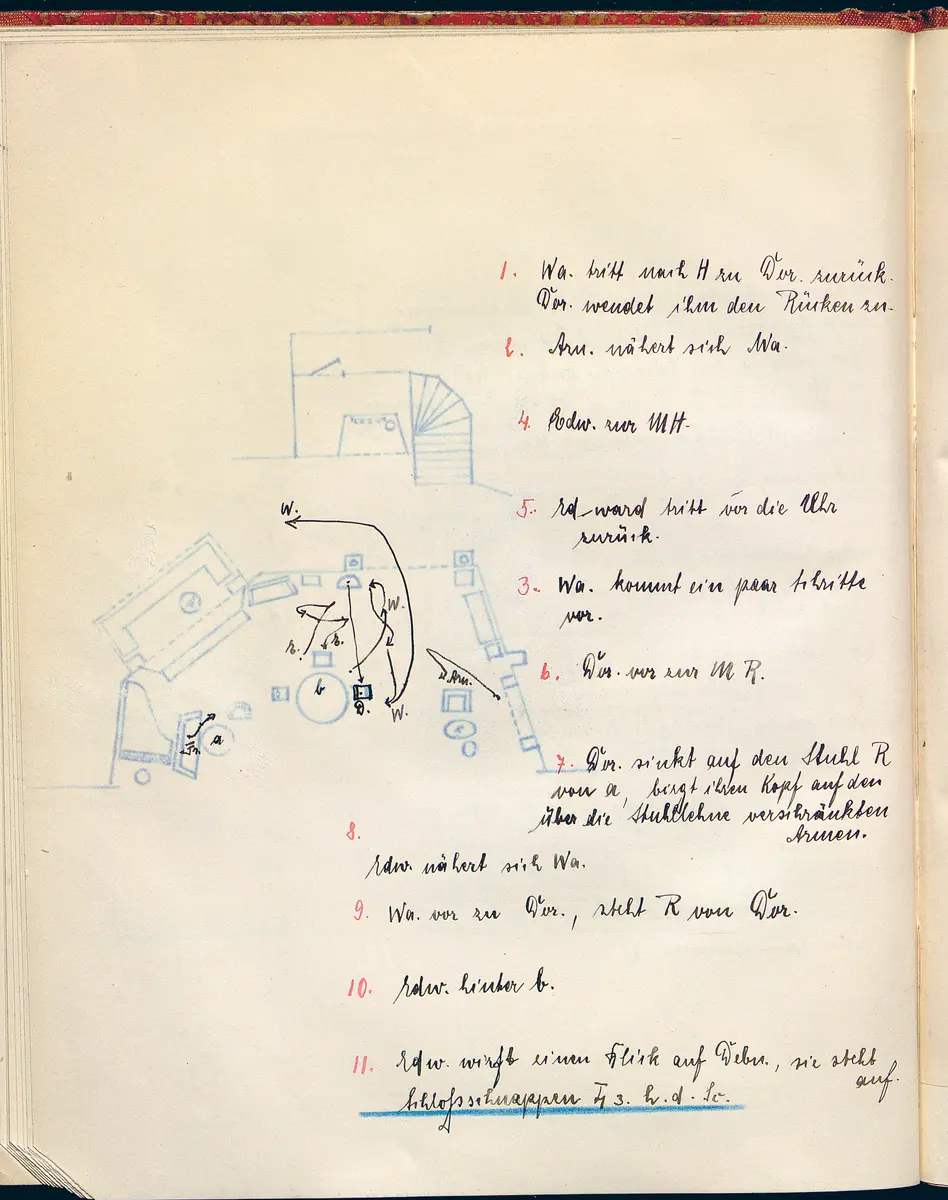 1. Wa. tritt nach H zu Dor. zurück.
Dor. wendet ihm den Rücken zu.
2. Arn. nähert sich Wa.
4. Edw. zur MH.
5. Edward tritt vor die Uhr
zurück.
3. Wa. kommt ein paar Schritte
vor.
W.
W.
E.
E.
6. Dor. vor zur M R.
Arn.
b
D.
W.
a
7. Dor. sinkt auf den Stuhl R
von a, birgt ihren Kopf auf den
über die Stuhllehne verschränkten
Armen.
8.
Edw. nähert sich Wa.
9. Wa. vor zu Dor., steht R von Dor.
10. Edw. hinter b.
11. Edw. wirft einen Blick auf Debn., sie steht
auf.
Schloßschnappen T 3. h. d. Sc.